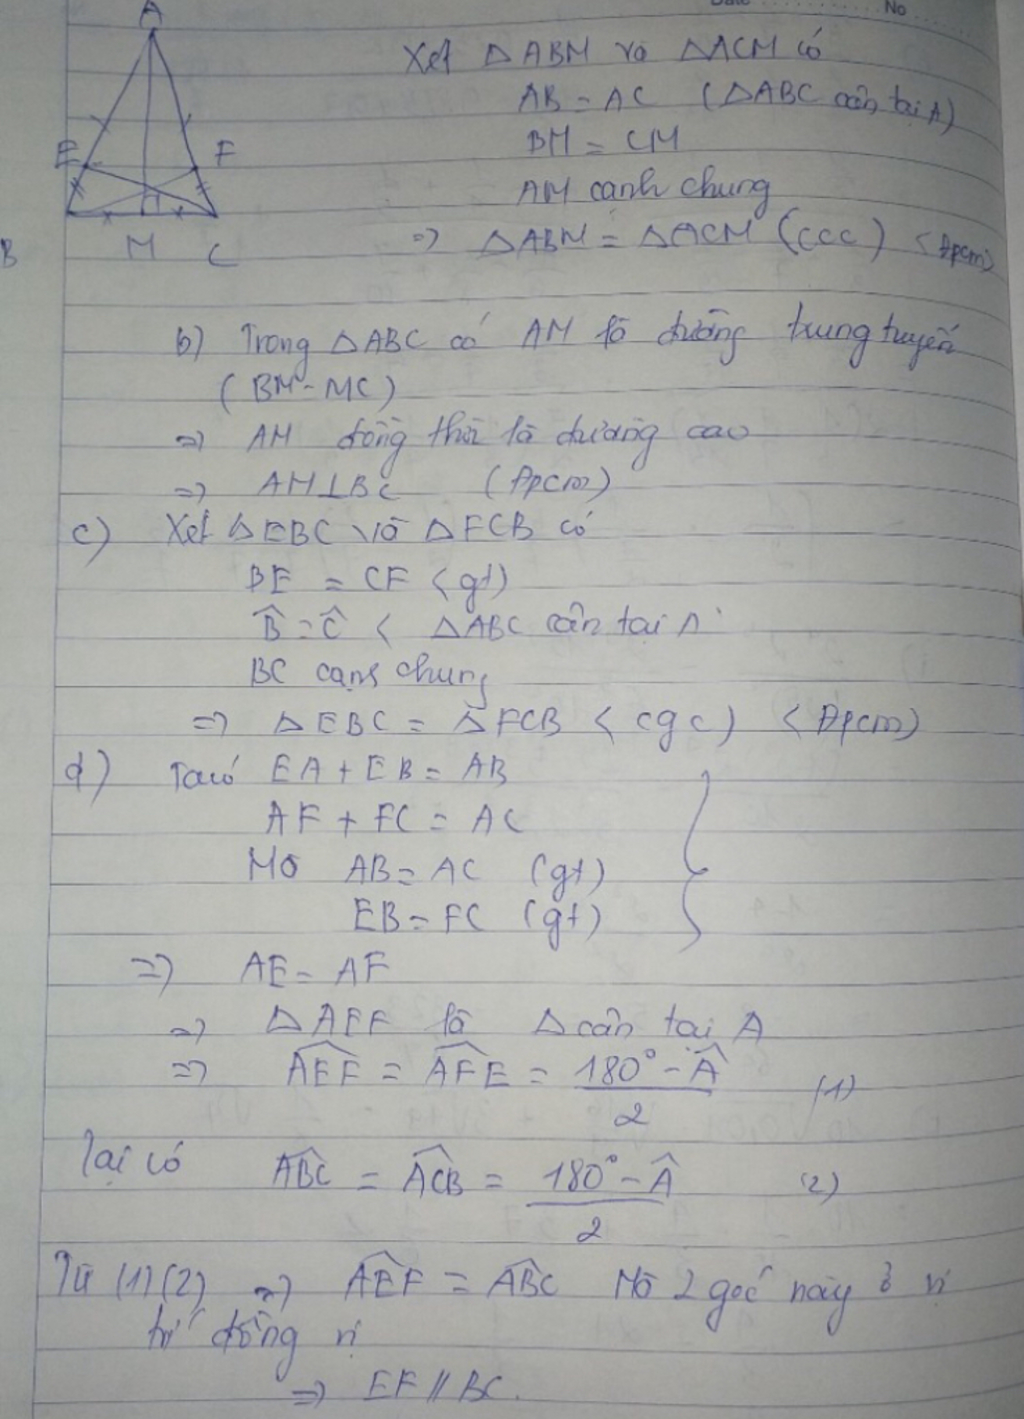 No
A
Xét △ABM và △ACM có
AB = AC (△ABC cân tại A)
BM = CM
E F
AM cạnh chung
B M C
=> △ABM = △ACM (ccc) (Đpcm)
b) Trong △ABC có AM là đường trung tuyến
(BM = MC)
=> AM đồng thời là đường cao
=> AM⊥BC (Đpcm)
c) Xét △EBC và △FCB có
BE = CF (gt)
B̂ = Ĉ ( △ABC cân tại A
BC cạnh chung
=> △EBC = △FCB (cgc) (Đpcm)
d) Ta có EA + EB = AB
AF + FC = AC
Mà AB = AC (gt)
EB = FC (gt)
=> AE = AF
=> △AEF là △cân tại A
=> AEF̂ = AFÊ = (180° - Â)/2 (1)
Lại có ABĈ = ACB̂ = (180° - Â)/2 (2)
Từ (1)(2) => AEF̂ = ABĈ Mà 2 góc này ở vị
trí đồng vị
=> EF // BC.